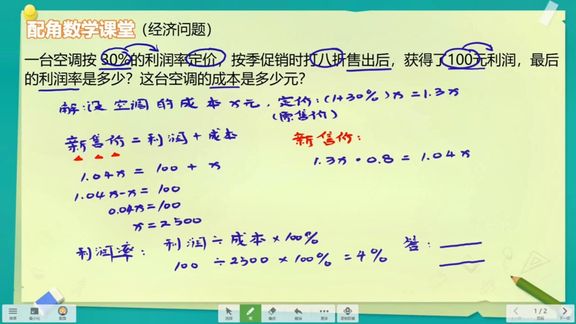 配角数学课堂（经济问题）
一台空调按30%的利润率定价，按季促销时打八折售出后，获得了100元利润，最后
的利润率是多少？这台空调的成本是多少元？
解：设空调的成本x元，定价：(1+30%)x=1.3x
(原售价)
新售价=利润+成本
新售价：
1.04x = 100 + x
1.3x·0.8=1.04x
1.04x-x=100
0.04x=100
x=2500
利润率：利润÷成本×100%
答：
100 ÷2500×100%=4%
1/2